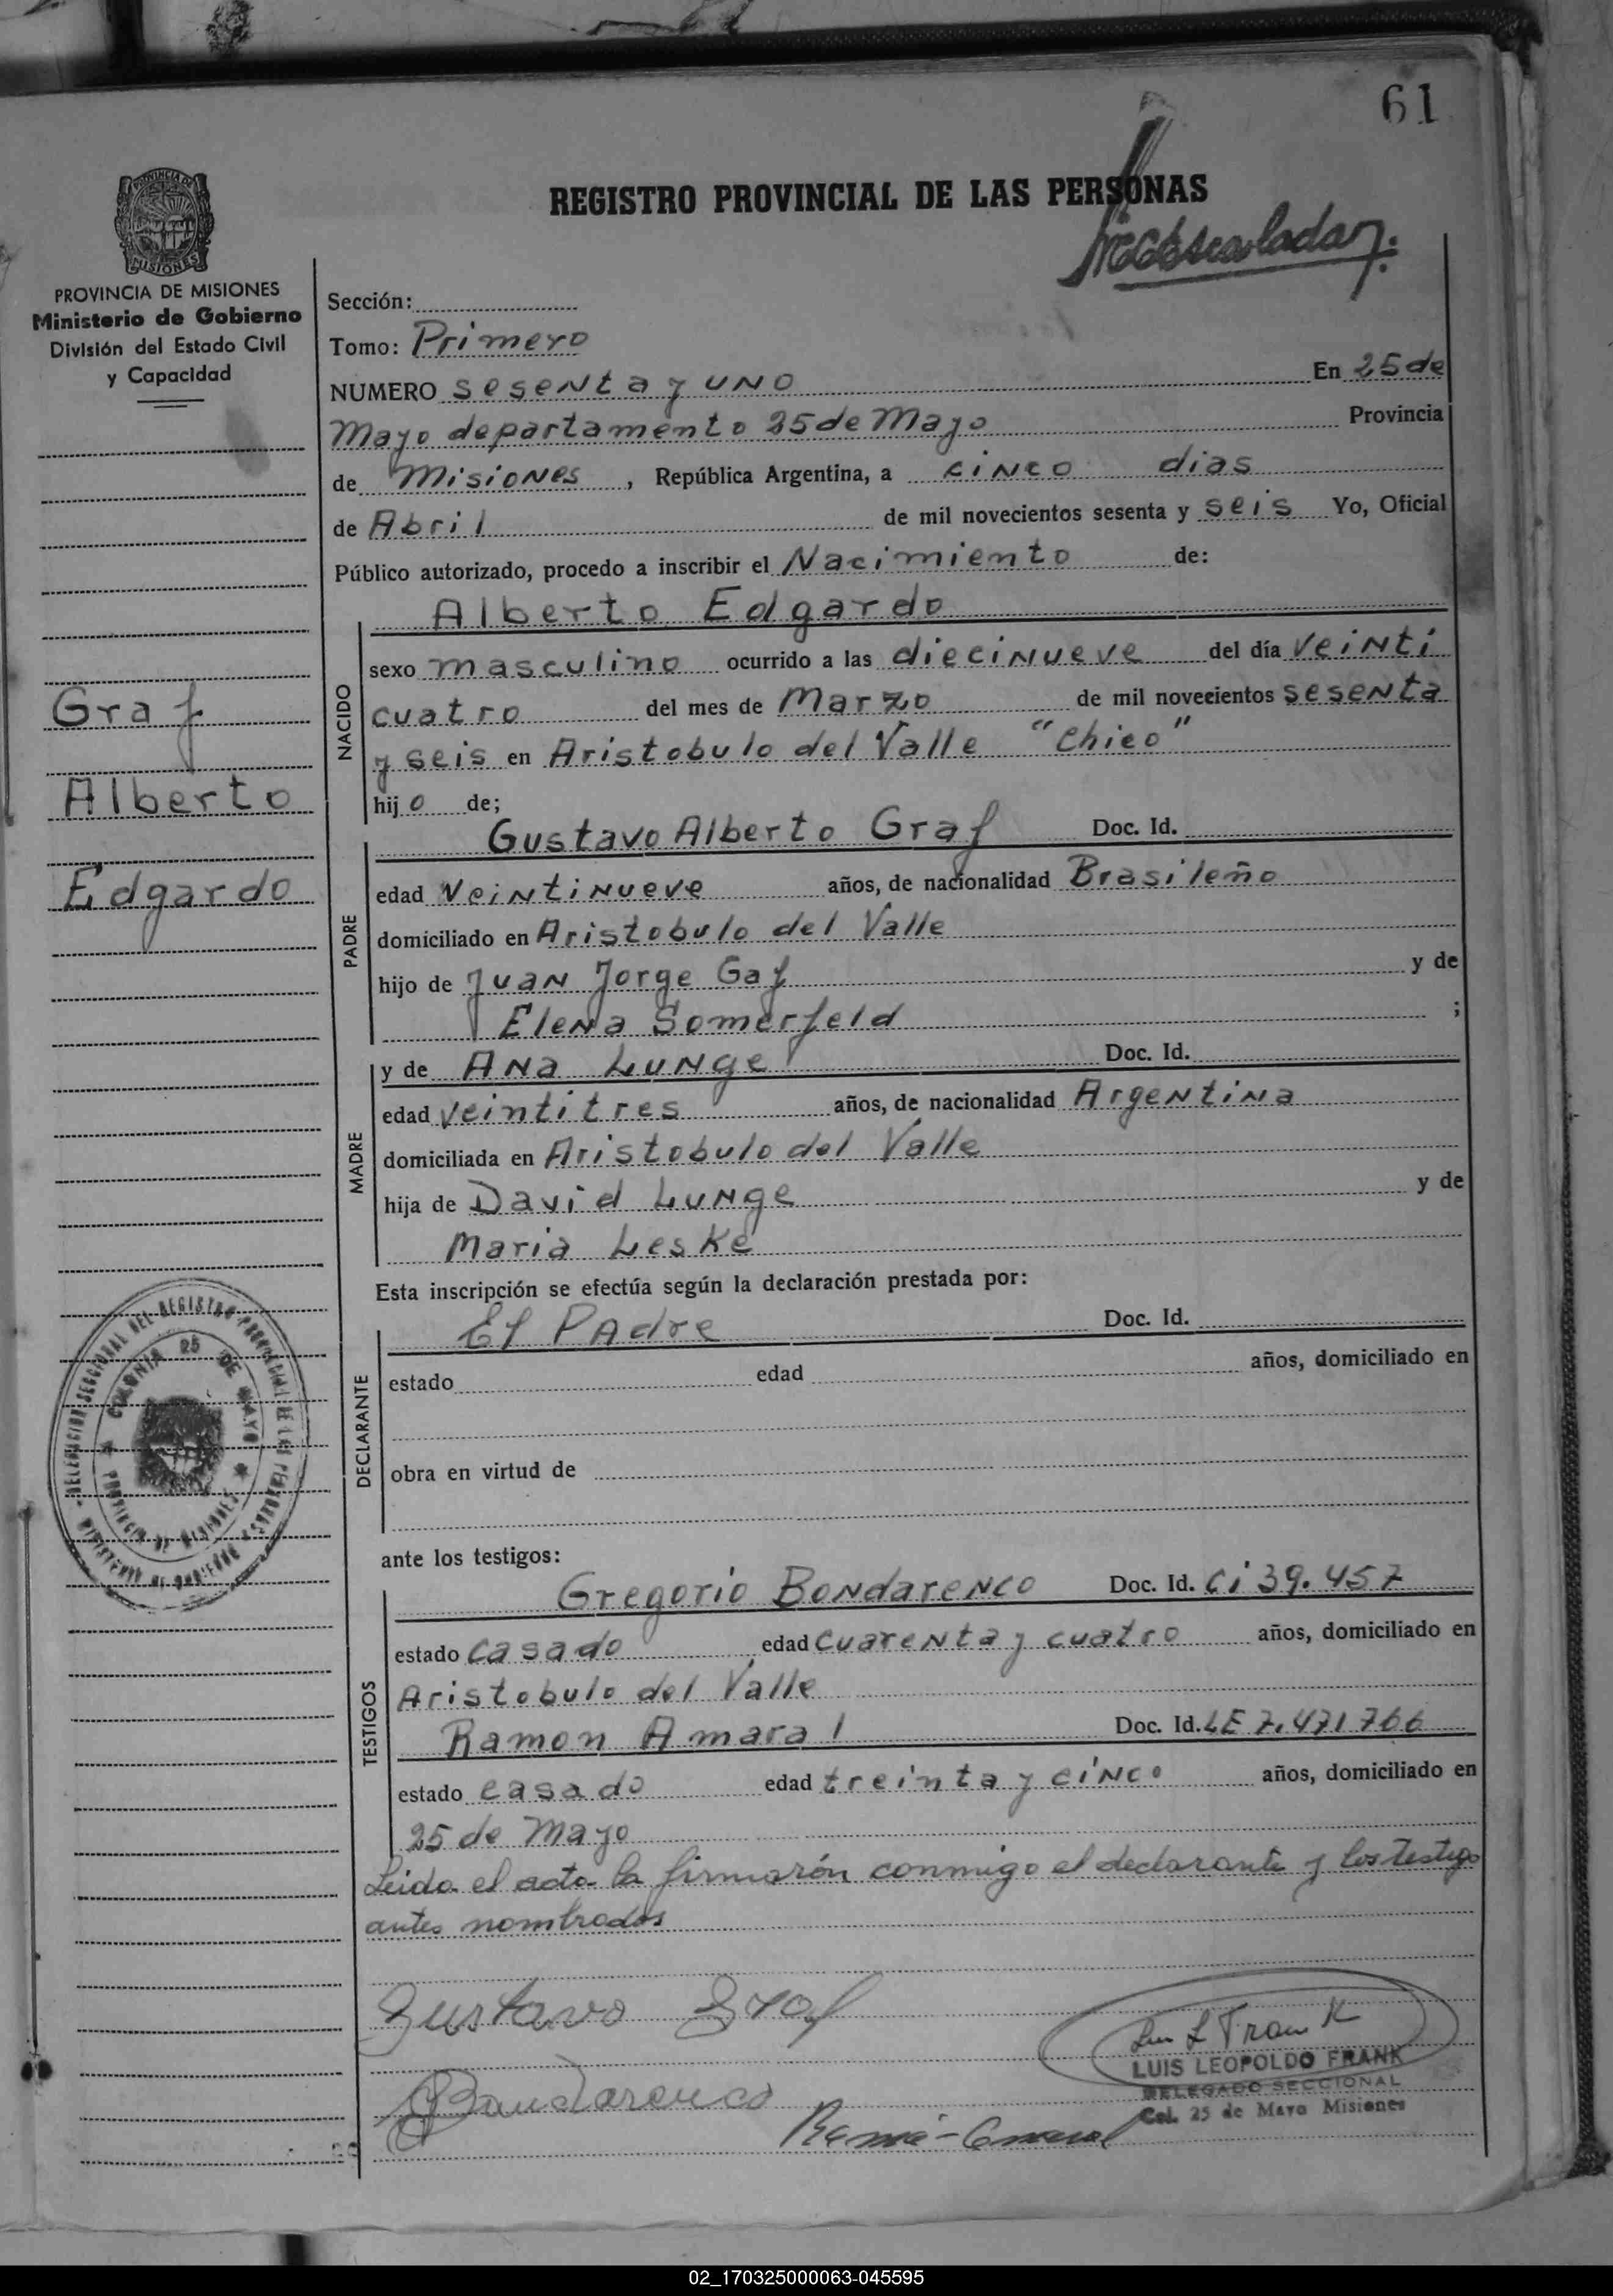 61
REGISTRO PROVINCIAL DE LAS PERSONAS
PROVINCIA DE MISIONES
Ministerio de Gobierno
División del Estado Civil
y Capacidad
Sección:
Tomo: Primero
NUMERO sesenta y uno En 25 de
Mayo departamento 25 de Mayo Provincia
de Misiones, República Argentina, a cinco dias
de Abril de mil novecientos sesenta y seis Yo, Oficial
Público autorizado, procedo a inscribir el Nacimiento de:
Alberto Edgardo
NACIDO
sexo masculino ocurrido a las diecinueve del día veinti
cuatro del mes de Marzo de mil novecientos sesenta
y seis en Aristobulo del Valle "Chico"
hijo de;
Graf
Alberto
Edgardo
Gustavo Alberto Graf Doc. Id.
PADRE
edad veintinueve años, de nacionalidad Brasileño
domiciliado en Aristobulo del Valle
hijo de Juan Jorge Gaf y de
Elena Somerfeld ;
y de Ana Lunge Doc. Id.
MADRE
edad veintitres años, de nacionalidad Argentina
domiciliada en Aristobulo del Valle
hija de David Lunge y de
Maria Leske
Esta inscripción se efectúa según la declaración prestada por:
El Padre Doc. Id.
DECLARANTE
estado edad años, domiciliado en
obra en virtud de
DELEGACION SECCIONAL DEL REGISTRO PROVINCIAL DE LAS PERSONAS
MINISTERIO DE GOBIERNO
COLONIA 25 DE MAYO
PROVINCIA DE MISIONES
ante los testigos:
Gregorio Bondarenco Doc. Id. Ci 39.457
TESTIGOS
estado casado edad cuarenta y cuatro años, domiciliado en
Aristobulo del Valle
Ramon Amaral Doc. Id. LE 7.471766
estado casado edad treinta y cinco años, domiciliado en
25 de Mayo
Leido el acta la firmarón conmigo el declarante y los testigo
antes nombrados
Gustavo Graf
Luis L Frank
LUIS LEOPOLDO FRANK
DELEGADO SECCIONAL
Col. 25 de Mayo Misiones
GBondarenco
02_170325000063-045595